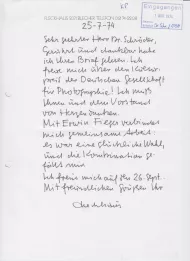 25-7-74
Sehr geehrter Herr Dr. Schröder,
Gerührt und dankbar habe
ich Ihren Brief gelesen. Ich
freue mich über den Kultur-
preis der Deutschen Gesellschaft
für Photographie! Ich muß
Ihnen und dem Vorstand
von Herzen danken.
Mit Erwin Fieger verbindet
mich gemeinsame Arbeit
es war eine glückliche Wahl,
und die Kombination ge-
fällt mir
Ich freue mich auf den 26. Sept.
Mit freundlichen Grüßen Ihr
Eingegangen